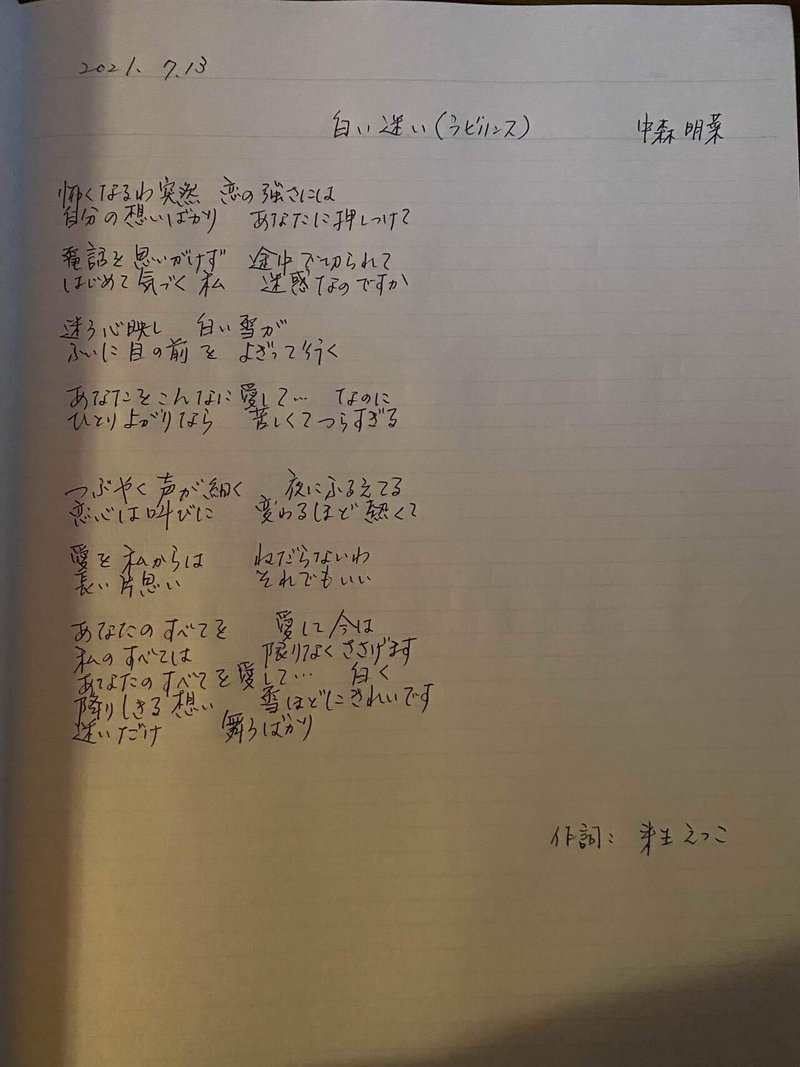 2021. 7.13
白い迷い(ラビリンス) 中森明菜
怖くなるわ突然 恋の強さには
自分の想いばかり あなたに押しつけて
電話を思いがけず 途中で切られて
はじめて気づく私 迷惑なのですか
迷う心映し 白い雪が
ふいに目の前を よぎって行く
あなたをこんなに愛して… なのに
ひとりよがりなら 苦しくてつらすぎる
つぶやく声が細く 夜にふるえてる
恋心は叫びに 変わるほど熱くて
愛を私からは ねだらないわ
長い片思い それでもいい
あなたのすべてを 愛して今は
私のすべては 限りなくささげます
あなたのすべてを愛して… 白く
降りしきる想い 雪ほどにきれいです
迷いだけ 舞うばかり
作詞: 来生えつこ